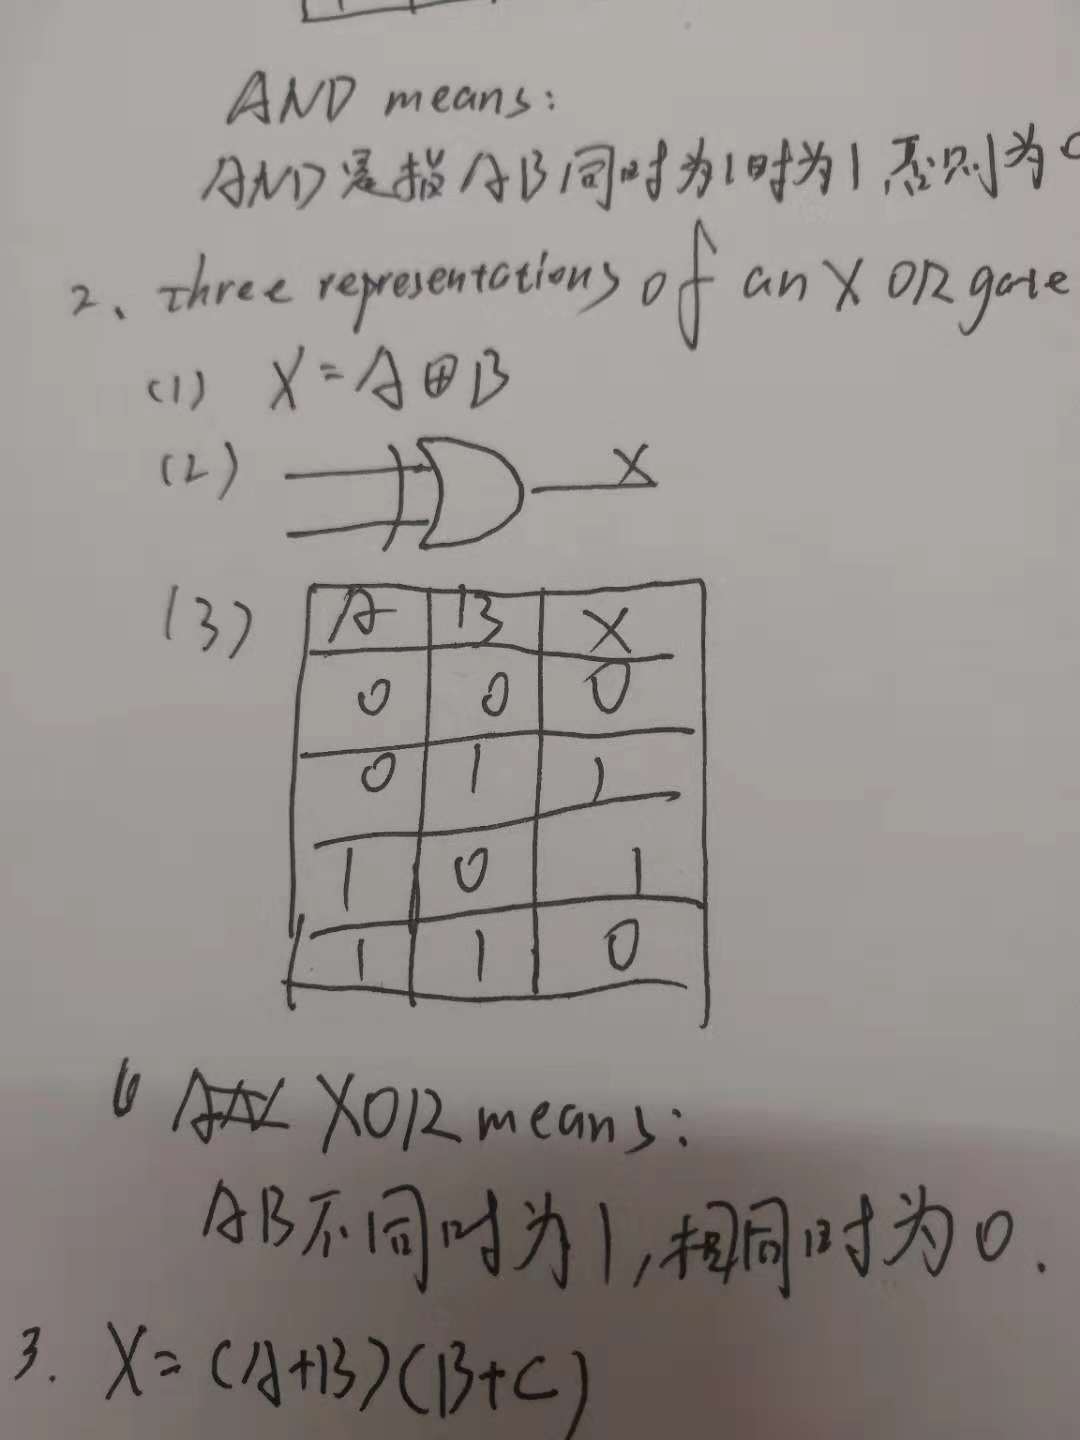 AND means:
AND是指AB同时为1时为1否则为0
2、three representations of an XOR gate
(1) X=A⊕B
(2) X
(3) A B X
0 0 0
0 1 1
1 0 1
1 1 0
XOR means:
AB不同时为1,相同时为0.
3. X=(A+B)(B+C)